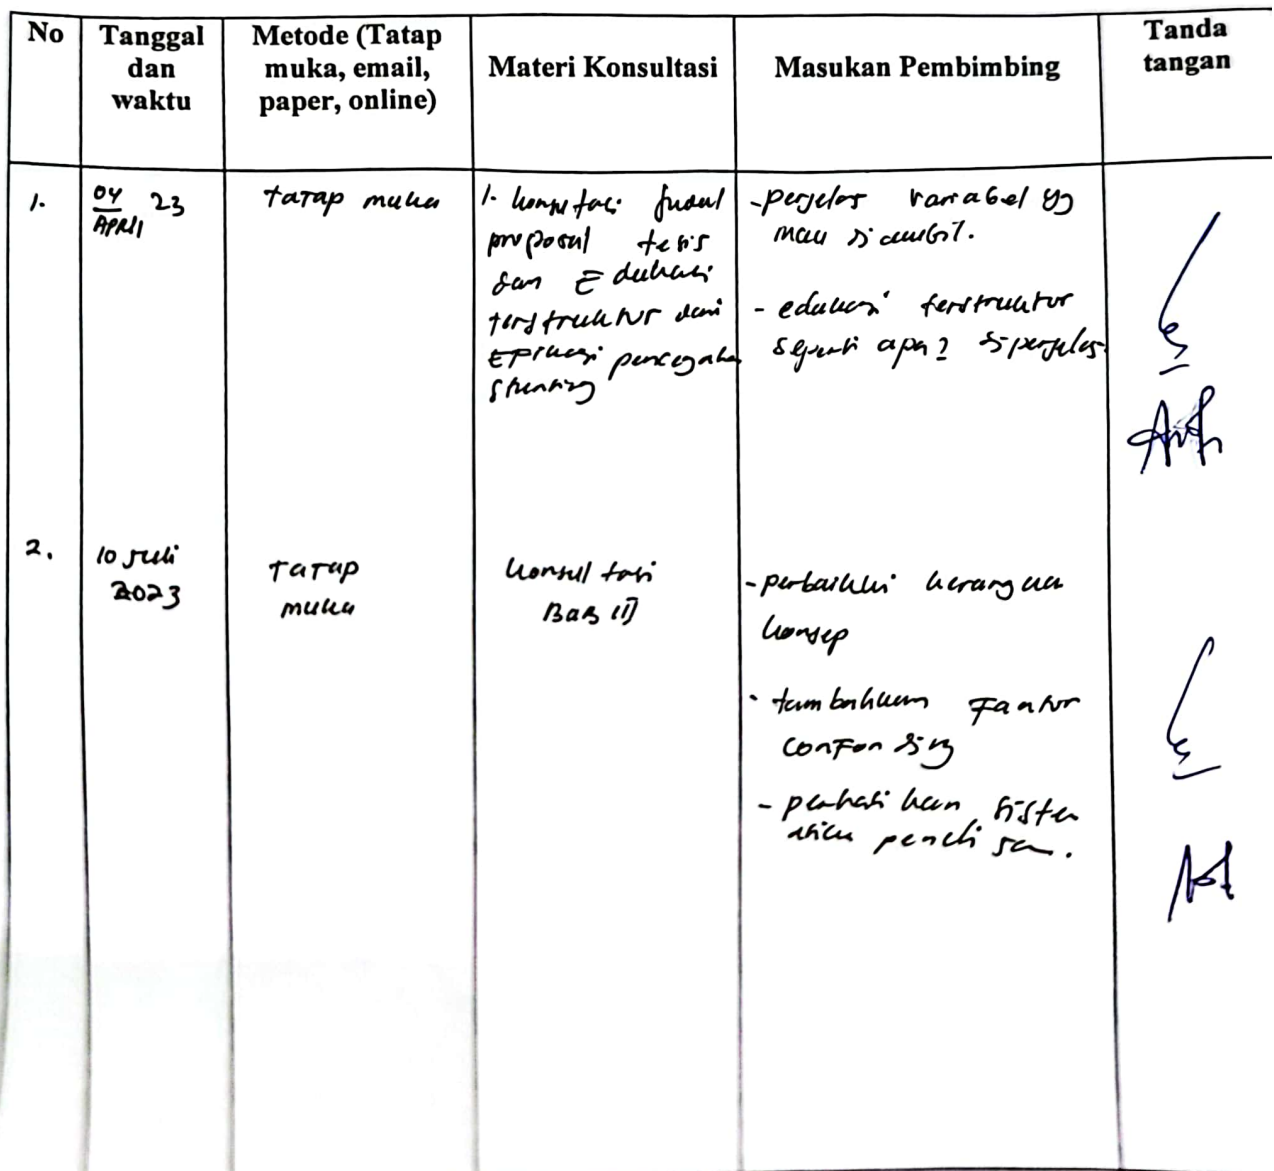 No
Tanggal
dan
waktu
Metode (Tatap
muka, email,
paper, online)
Materi Konsultasi
Masukan Pembimbing
Tanda
tangan
1.
04 23
APRIL
tatap muka
1. konsultasi judul
proposal tesis
dan Edukasi
terstruktur dari
pencegahan
stunting
- perjelas variabel yg
mau diambil.
- edukasi terstruktur
seperti apa? diperjelas.
2.
10 Juli
2023
tatap
muka
konsultasi
BAB II
- perbaikki kerangka
konsep
- tambahkan Faktor
conFonding
- perhatikan sistem
atika penulisan.